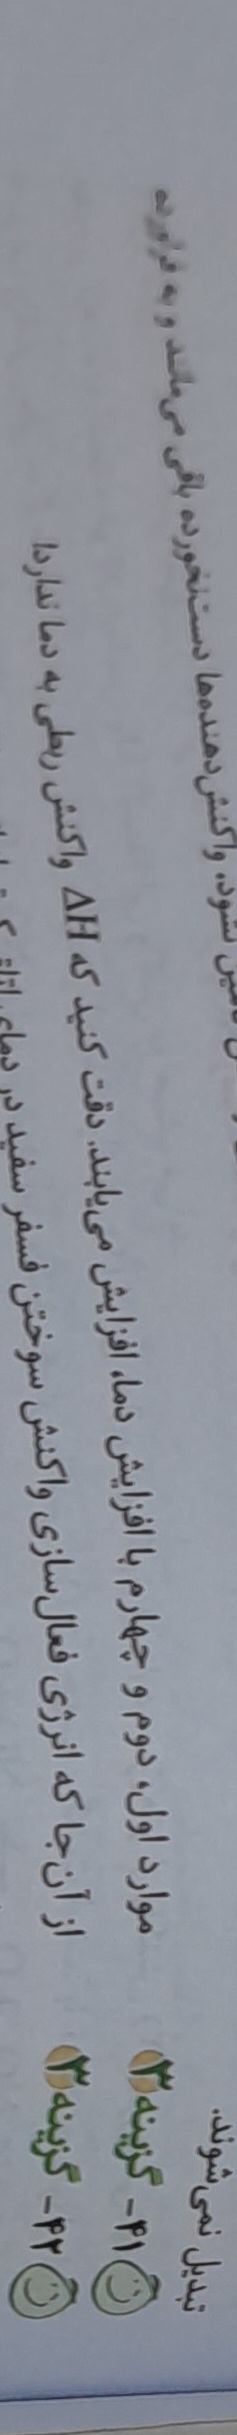 نشود، واکنش‌دهنده‌ها دست‌نخورده باقی می‌مانند و به فراورده
تبدیل نمی‌شوند.
۴۱- گزینه ۳ موارد اول، دوم و چهارم با افزایش دما، افزایش می‌یابند. دقت کنید که ΔH واکنش ربطی به دما ندارد!
۴۲- گزینه ۳ از آن‌جا که انرژی فعال‌سازی واکنش سوختن فسفر سفید در دمای اتاق